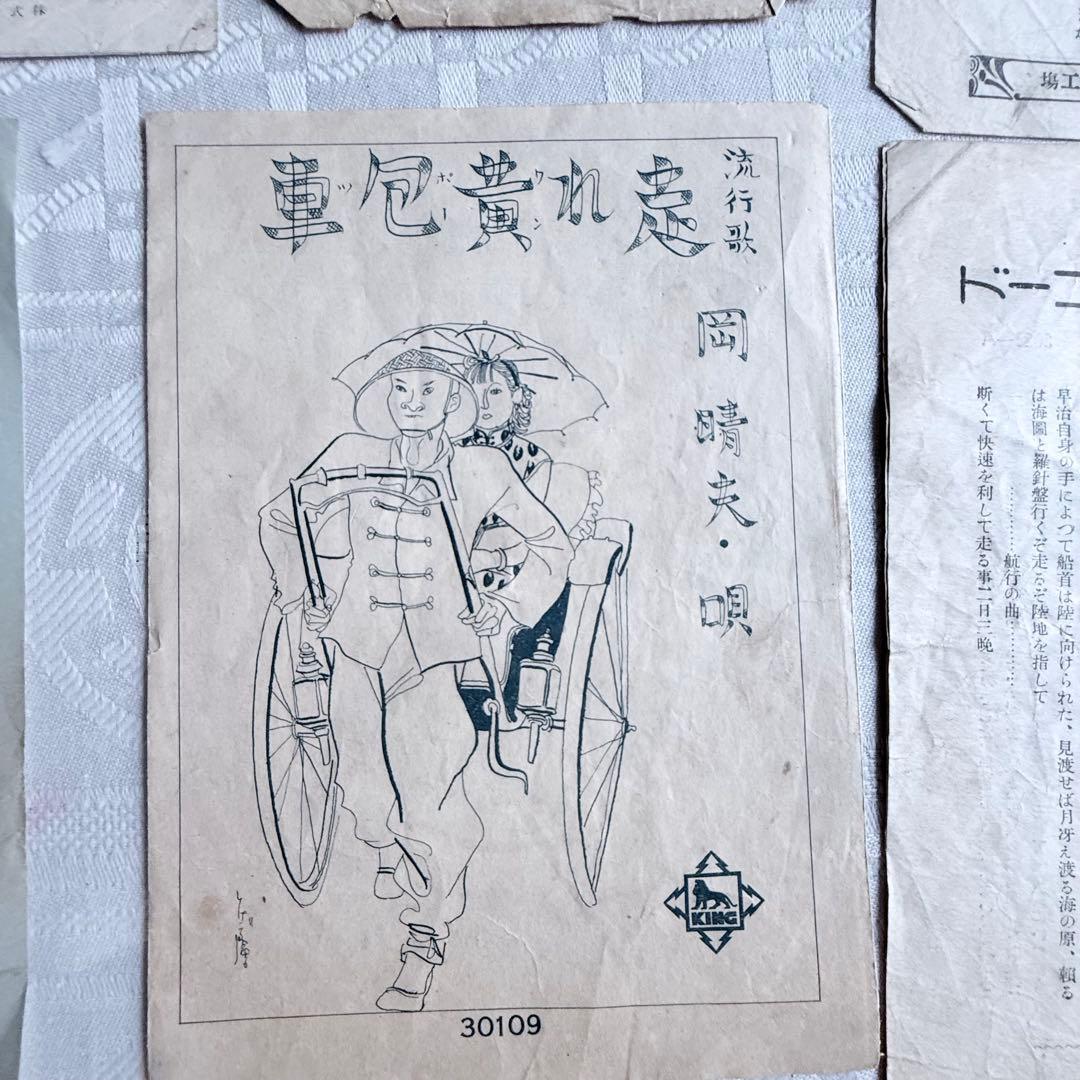 株式
工場
流行歌
走れ黃包車
ワンポーツ
岡晴夫・唄
KING
30109
早治自身の手によつて船首は陸に向けられた、見渡せば月冴え渡る海の原、賴る
は海圖と羅針盤行くぞ走るぞ陸地を指して
…………航行の曲…………
斯くて快速を利して走る事二日三晩